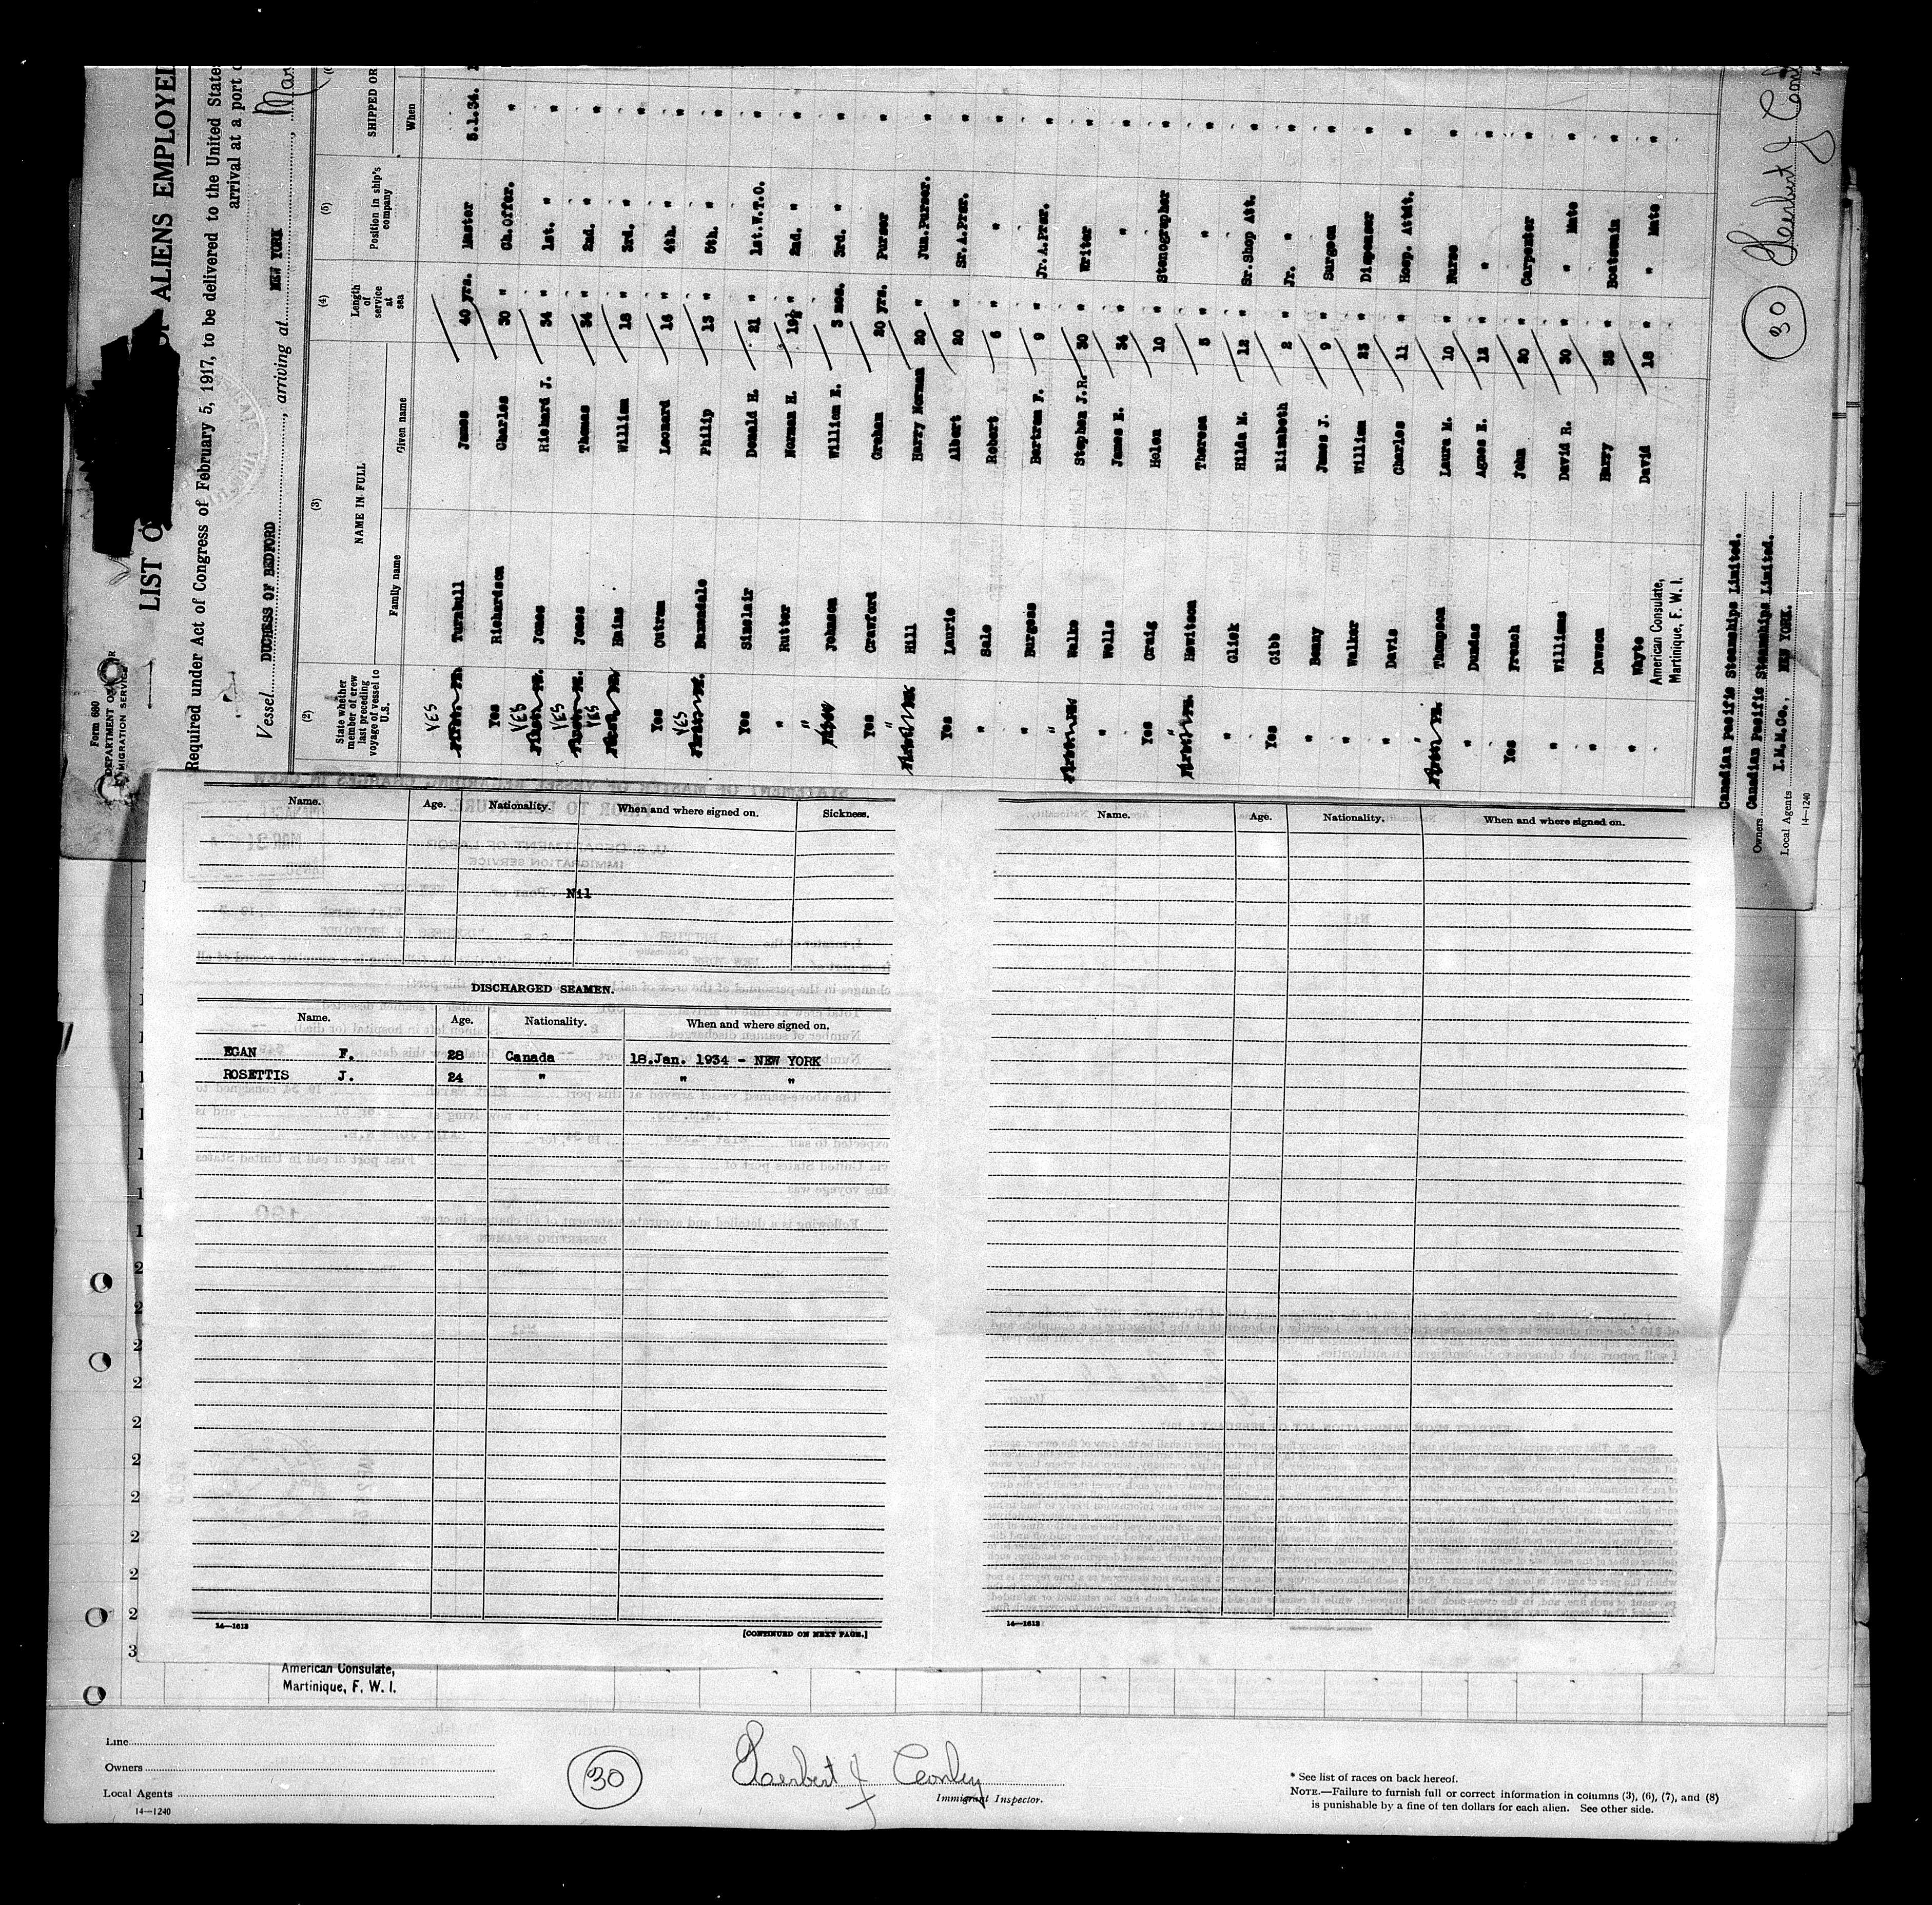 Form 680
LIST O
ALIENS EMPLOYED
Required under Act of Congress of February 5, 1917, to be delivered to the United State
arrival at a port o
Vessel DUCHESS OF BEDFORD, arriving at NEW YORK
(2) (3) (4) (5)
State whether member of crew last preceding voyage of vessel to U.S. NAME IN FULL Length of service at sea Position in ship's company SHIPPED OR
Family name Given name When
YES Turnbull James 40 yrs. Master 5.1.34.
Yes Richardson Charles 30 " Ch.Offer. "
YES Jones Richard J. 34 " 1st. " "
YES Jones Thomas 34 " 2nd. " "
YES Bains William 18 " 3rd. " "
Yes Outram Leonard 16 " 4th. " "
YES Barnsdale Philip 13 " 5th. " "
Yes Sinclair Donald H. 21 " 1st.W.T.O. "
" Rutter Norman H. 19½ " 2nd. " "
" Johnson William E. 3 mos. 3rd. " "
Yes Crawford Graham 20 yrs. Purser "
" Hill Harry Norman 20 " Jun.Purser. "
Yes Laurie Albert 20 " Sr.A.Prsr. "
" Sale Robert 6 " " "
" Burgess Bertram F. 9 " Jr.A.Prsr. "
" Walke Stephen J.R. 30 " Writer "
" Wells James E. 34 " " "
Yes Craig Helen 10 " Stenographer "
" Howitson Theresa 5 " " "
" Gliek Hilda M. 12 " Sr.Shop Att. "
Yes Gibb Elizabeth 2 " Jr. " "
" Beany James J. 9 " Surgeon "
" Walker William 23 " Dispenser "
" Davis Charles 11 " Hosp. Attdt. "
" Thompson Laura M. 10 " Nurse "
" Dundas Agnes E. 12 " " "
Yes French John 20 " Carpenter "
" Williams David R. 30 " " Mate "
" Dawson Harry 35 " Boatswain "
" Whyte David 18 " " Mate "
American Consulate,
Martinique, F. W. I.
Canadian Pacific Steamships Limited.
Owners Canadian Pacific Steamships Limited.
Local Agents I.M.M.Co., NEW YORK.
14—1240
30
Name. Age. Nationality. When and where signed on. Sickness.
Nil
DISCHARGED SEAMEN.
Name. Age. Nationality. When and where signed on.
EGAN F. 28 Canada 18.Jan. 1934 - NEW YORK
ROSETTIS J. 24 " " "
14—1613
[CONTINUED ON NEXT PAGE.]
Name. Age. Nationality. When and where signed on.
14—1613
American Consulate,
Martinique, F. W. I.
Line
Owners
Local Agents
14—1240
30
Herbert J Conley
Immigrant Inspector.
* See list of races on back hereof.
NOTE.—Failure to furnish full or correct information in columns (3), (6), (7), and (8)
is punishable by a fine of ten dollars for each alien. See other side.